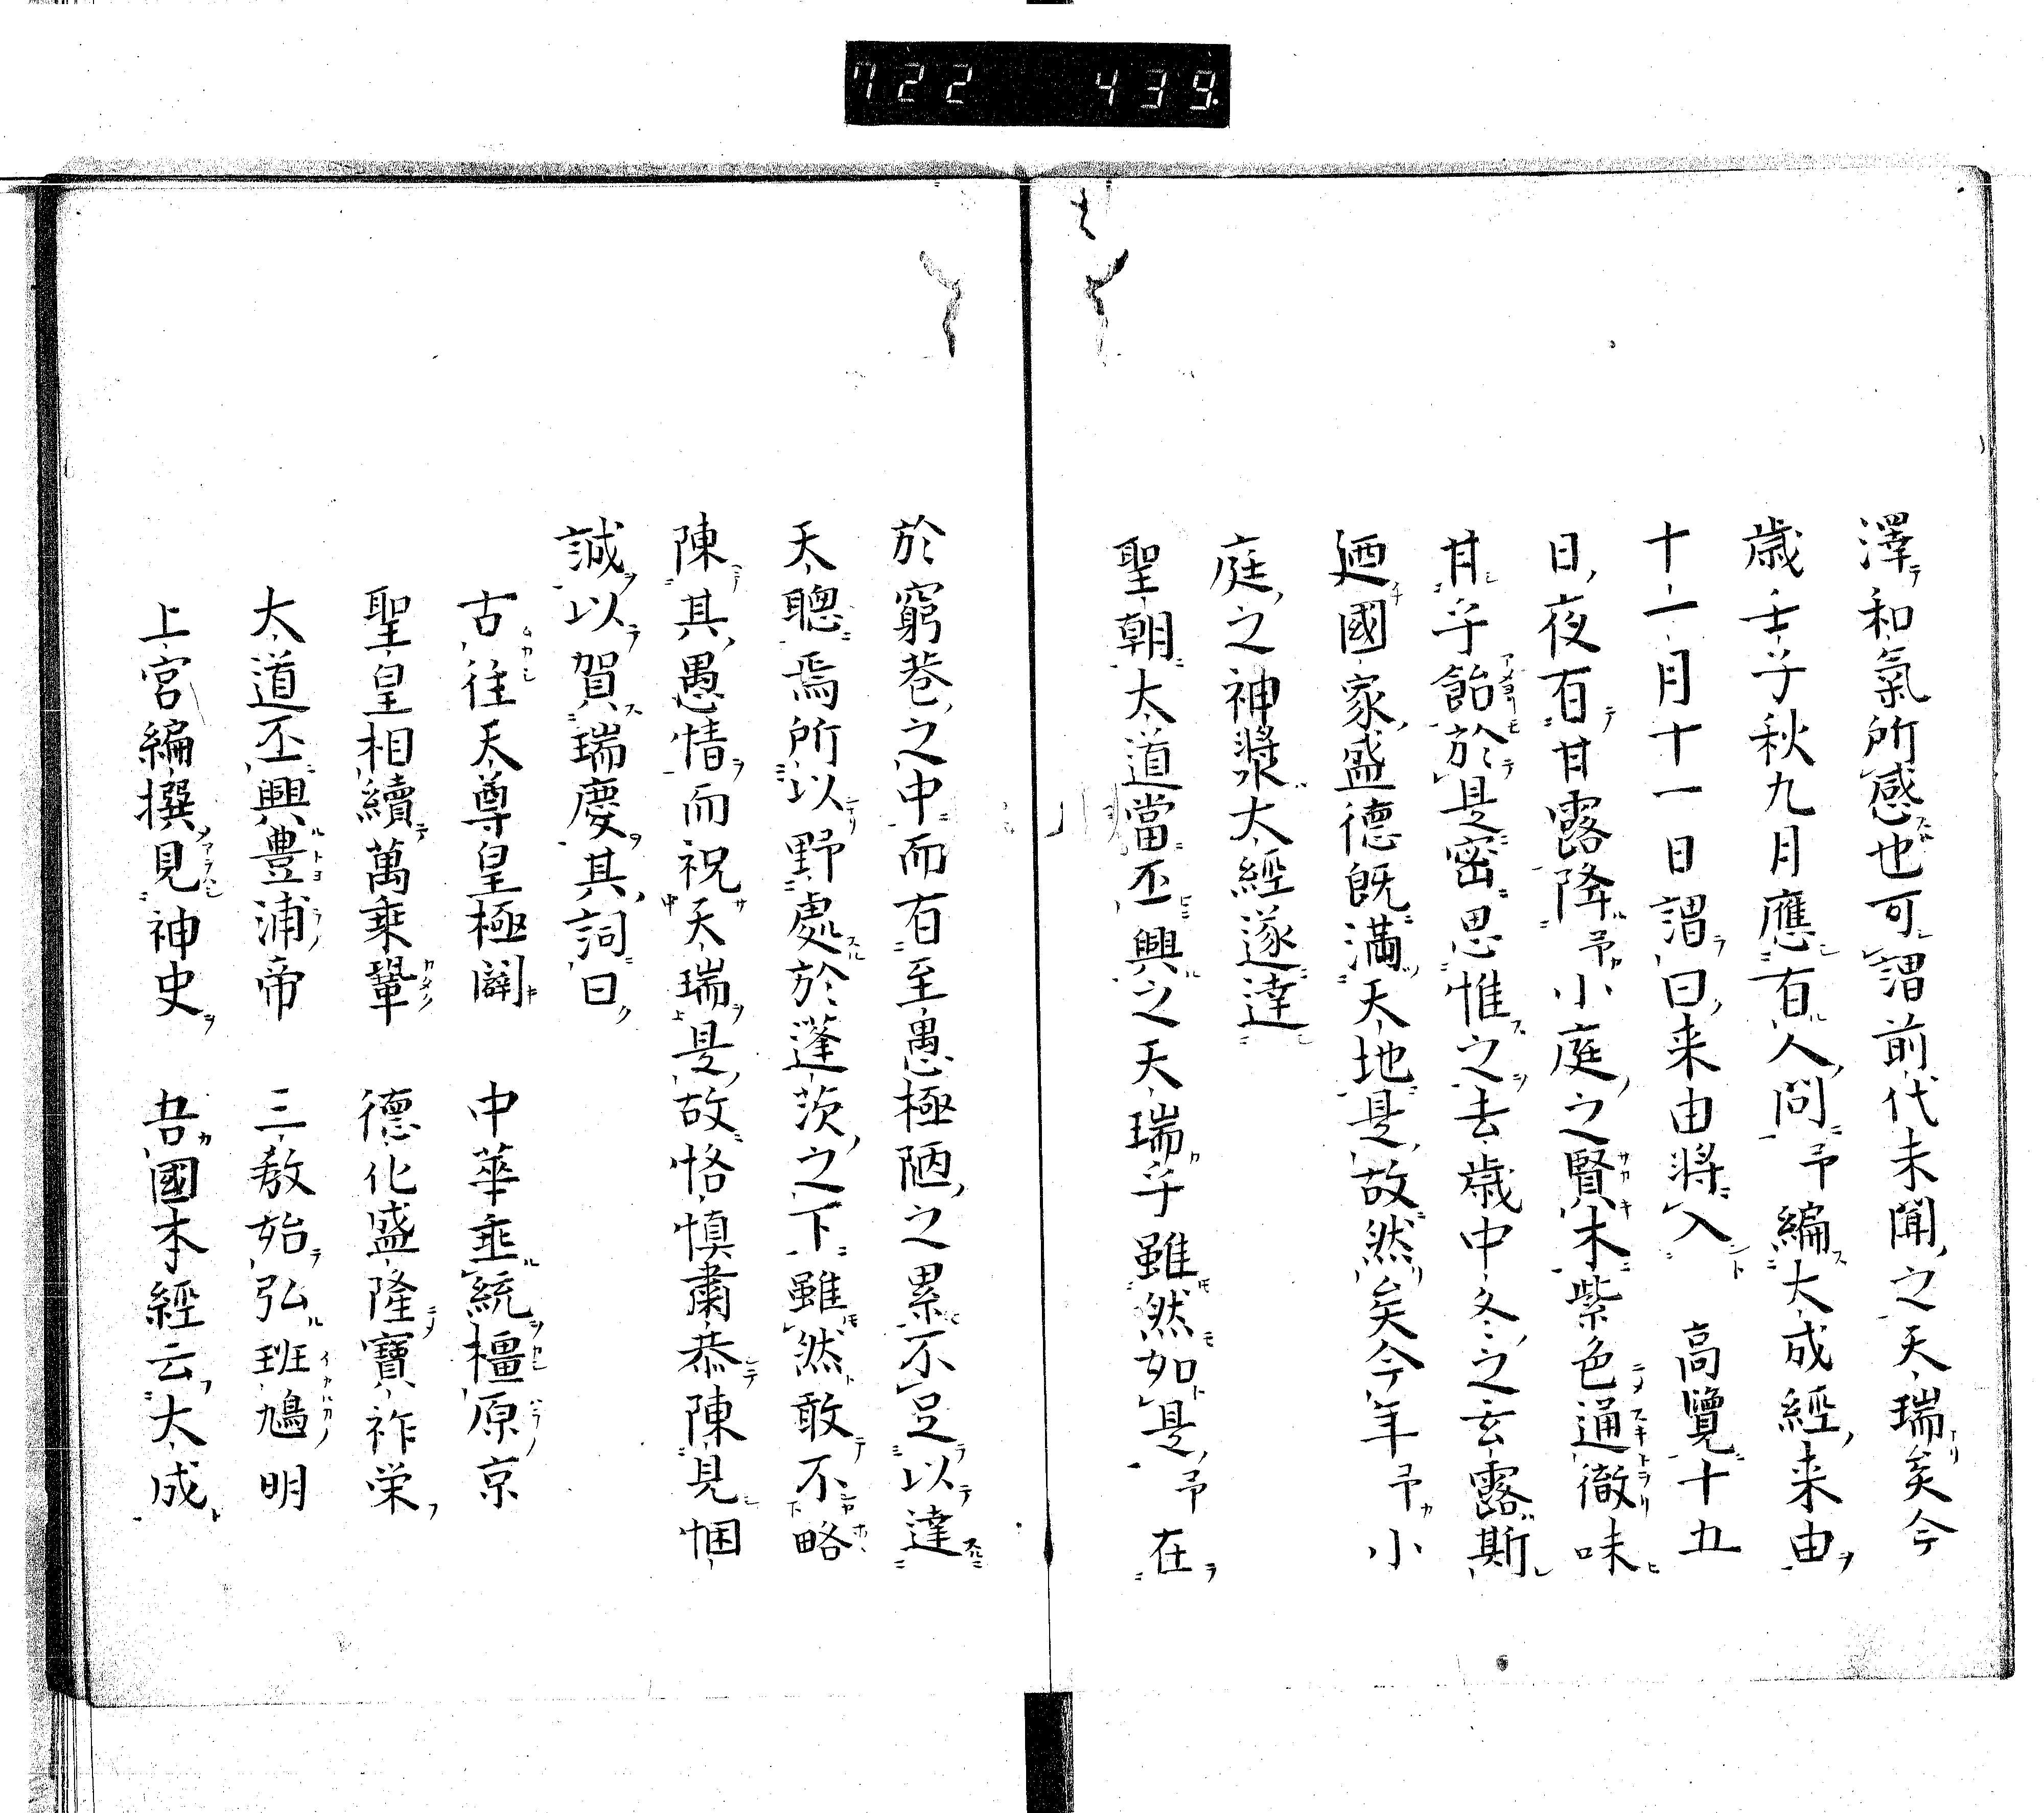 722 439.
澤和氣所感也可謂前代未聞之天瑞矣今
歳壬子秋九月應有人問予編大成經来由
十一月十一日謂曰来由將入　高覽十五
日夜百甘露降予小庭之賢木紫色通徹味
甘乎飴於是密思惟之去歳中冬之玄露斯
廼國家盛德既滿天地是故然矣今年予小
庭之神漿大經遂達
聖朝大道當丕興之天瑞乎雖然如是予在
於窮巷之中而有至愚極陋之累不足以達
天聰焉所以野處於蓬茨之下雖然敢不略
陳其愚情而祝天瑞是故恪慎肅恭陳見悃
誠以賀瑞慶其詞曰
古往天尊皇極闢　中華垂統橿原京
聖皇相續萬乘鞏　德化盛隆寶祚栄
大道丕興豊浦帝　三教始弘班鳩明
上宮編撰見神史　吾國本經云大成